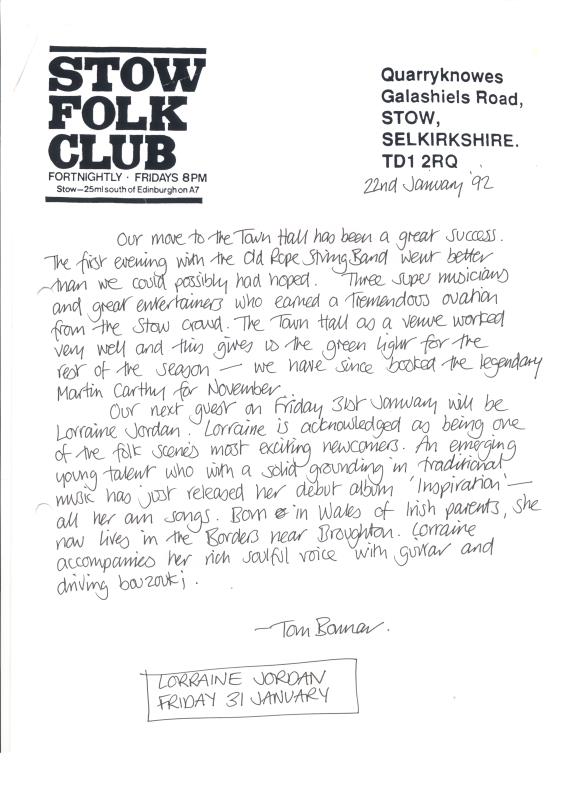 STOW
FOLK
CLUB
FORTNIGHTLY · FRIDAYS 8PM
Stow—25ml south of Edinburgh on A7
Quarryknowes
Galashiels Road,
STOW,
SELKIRKSHIRE.
TD1 2RQ
22nd January '92
Our move to the Town Hall has been a great success.
The first evening with the Old Rope String Band went better
than we could possibly had hoped. Three super musicians
and great entertainers who earned a tremendous ovation
from the Stow crowd. The Town Hall as a venue worked
very well and this gives us the green light for the
rest of the season — we have since booked the legendary
Martin Carthy for November.
Our next guest on Friday 31st January will be
Lorraine Jordan. Lorraine is acknowledged as being one
of the folk scene's most exciting newcomers. An emerging
young talent who with a solid grounding in traditional
music has just released her debut album 'Inspiration' —
all her own songs. Born in Wales of Irish parents, she
now lives in the Borders near Broughton. Lorraine
accompanies her rich soulful voice with guitar and
driving bouzouki.
— Tom Bonner.
LORRAINE JORDAN
FRIDAY 31 JANUARY